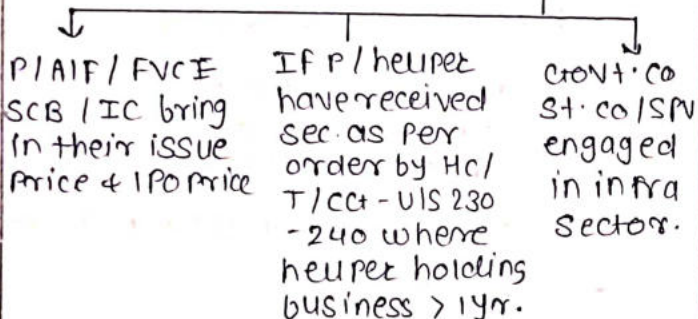 P/AIF/FVCI
SCB/IC bring
in their issue
price & IPO price
If P/heuper
have received
sec. as per
order by HC/
T/CG - U/S 230
-240 where
heuper holding
business > 1yr.
Govt. co
St. co/SPV
engaged
in infra
Sector.